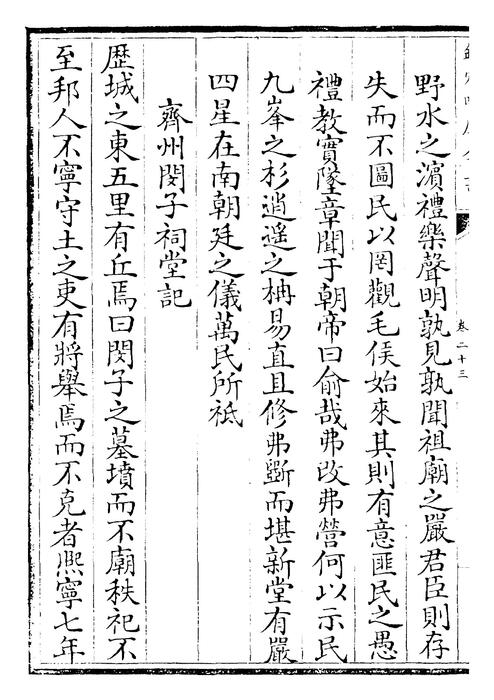 卷二十三
野水之濵禮樂聲明孰見孰聞祖廟之嚴君臣則存
失而不圖民以罔觀毛侯始來其則有意匪民之愚
禮教實墜章聞于朝帝曰俞哉弗改弗營何以示民
九峯之杉逍遥之柟易直且修弗斵而堪新堂有嚴
四星在南朝廷之儀萬民所祗
齊州閔子祠堂記
歴城之東五里有丘焉曰閔子之墓墳而不廟秩祀不
至邦人不寧守土之吏有將舉焉而不克者熈寧七年